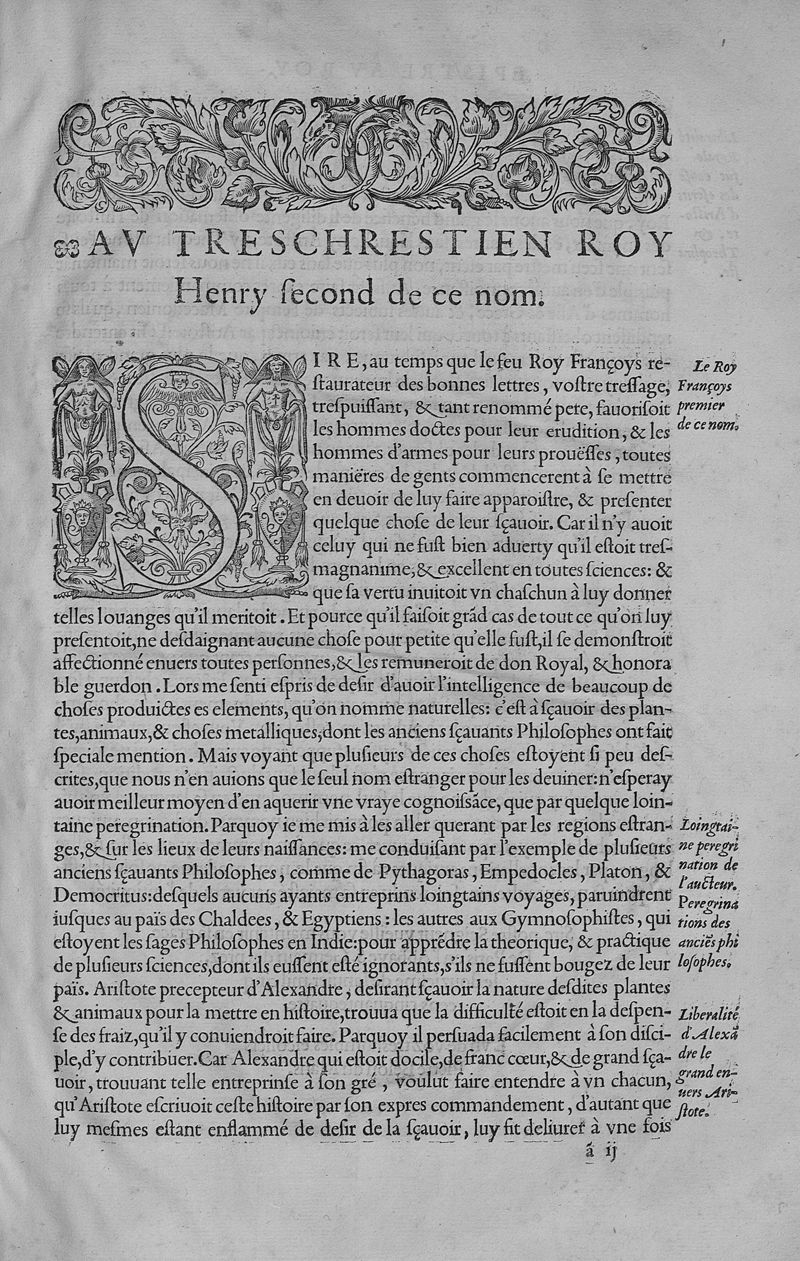 AV TRESCHRESTIEN ROY
Henry ſecond de ce nom.
SIRE, au temps que le feu Roy Françoys re-
ſtaurateur des bonnes lettres, voſtre treſſage,
treſpuiſſant, & tant renommé pere, fauoriſoit
les hommes doctes pour leur erudition, & les
hommes d'armes pour leurs prouëſſes, toutes
maniëres de gents commencerent à ſe mettre
en deuoir de luy faire apparoiſtre, & preſenter
quelque choſe de leur ſçauoir. Car il n'y auoit
celuy qui ne fuſt bien aduerty qu'il eſtoit treſ-
magnanime, & excellent en toutes ſciences: &
que ſa vertu inuitoit vn chaſchun à luy donner
telles louanges qu'il meritoit. Et pource qu'il faiſoit grãd cas de tout ce qu'on luy
preſentoit, ne deſdaignant aucune choſe pour petite qu'elle fuſt, il ſe demonſtroit
affectionné enuers toutes perſonnes, & les remuneroit de don Royal, & honora
ble guerdon. Lors me ſenti eſpris de deſir d'auoir l'intelligence de beaucoup de
choſes produictes es elements, qu'on nomme naturelles: c'eſt à ſçauoir des plan-
tes, animaux, & choſes metalliques, dont les anciens ſçauants Philoſophes ont fait
ſpeciale mention. Mais voyant que pluſieurs de ces choſes eſtoyent ſi peu deſ-
crites, que nous n'en auions que le ſeul nom eſtranger pour les deuiner: n'eſperay
auoir meilleur moyen d'en aquerir vne vraye cognoiſsãce, que par quelque loin-
taine peregrination. Parquoy ie me mis à les aller querant par les regions eſtran-
ges, & ſur les lieux de leurs naiſſances: me conduiſant par l'exemple de pluſieurs
anciens ſçauants Philoſophes, comme de Pythagoras, Empedocles, Platon, &
Democritus: deſquels aucuns ayants entreprins loingtains voyages, paruindrent
iuſques au païs des Chaldees, & Egyptiens: les autres aux Gymnoſophiſtes, qui
eſtoyent les ſages Philoſophes en Indie: pour apprẽdre la theorique, & practique
de pluſieurs ſciences, dont ils euſſent eſté ignorants, s'ils ne fuſſent bougez de leur
païs. Ariſtote precepteur d'Alexandre, deſirant ſçauoir la nature deſdites plantes
& animaux pour la mettre en hiſtoire, trouua que la difficulté eſtoit en la deſpen-
ſe des fraiz, qu'il y conuiendroit faire. Parquoy il perſuada facilement à ſon diſci-
ple, d'y contribuer. Car Alexandre qui eſtoit docile, de franc cœur, & de grand ſça-
uoir, trouuant telle entreprinſe à ſon gré, voulut faire entendre à vn chacun,
qu'Ariſtote eſcriuoit ceſte hiſtoire par ſon expres commandement, d'autant que
luy meſmes eſtant enflammé de deſir de la ſçauoir, luy fit deliurer à vne fois
ã ij
Le Roy
Françoys
premier
de ce nom.
Loingtai-
ne peregri
nation de
l'aucteur.
Peregrina
tions des
anciẽs phi
loſophes.
Liberalité
d'Alexã
dre le
grand en-
uers Ari-
ſtote.